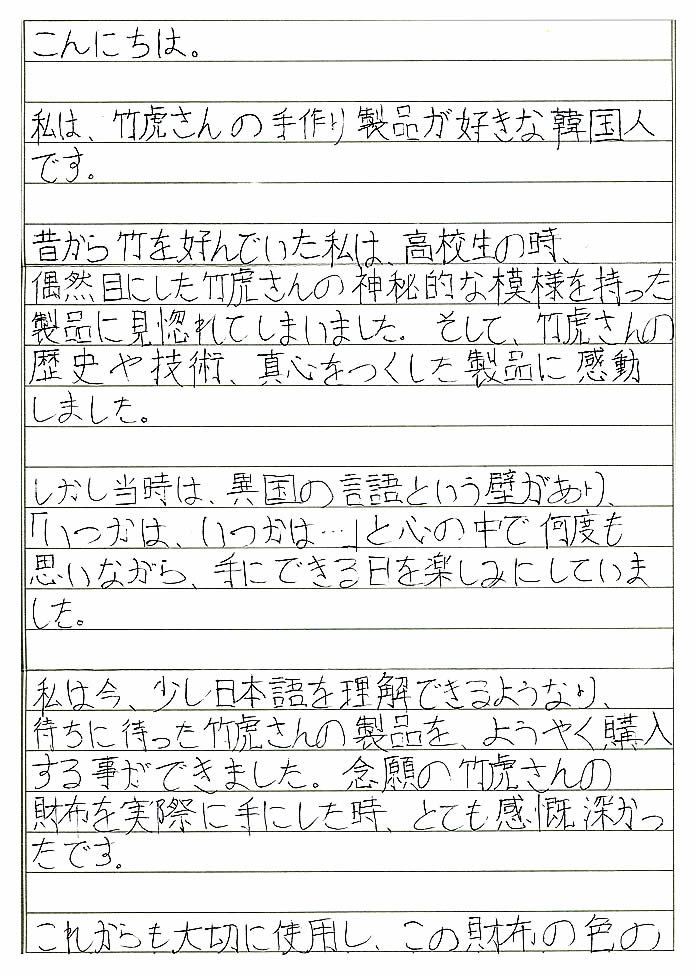 こんにちは。
私は、竹虎さんの手作り製品が好きな韓国人
です。
昔から竹を好んでいた私は、高校生の時、
偶然目にした竹虎さんの神秘的な模様を持った
製品に見惚れてしまいました。そして、竹虎さんの
歴史や技術、真心をつくした製品に感動
しました。
しかし当時は、異国の言語という壁があり、
「いつかは、いつかは…」と心の中で何度も
思いながら、手にできる日を楽しみにしていま
した。
私は今、少し日本語を理解できるようなり、
待ちに待った竹虎さんの製品を、ようやく購入
する事ができました。念願の竹虎さんの
財布を実際に手にした時、とても感慨深かっ
たです。
これからも大切に使用し、この財布の色の